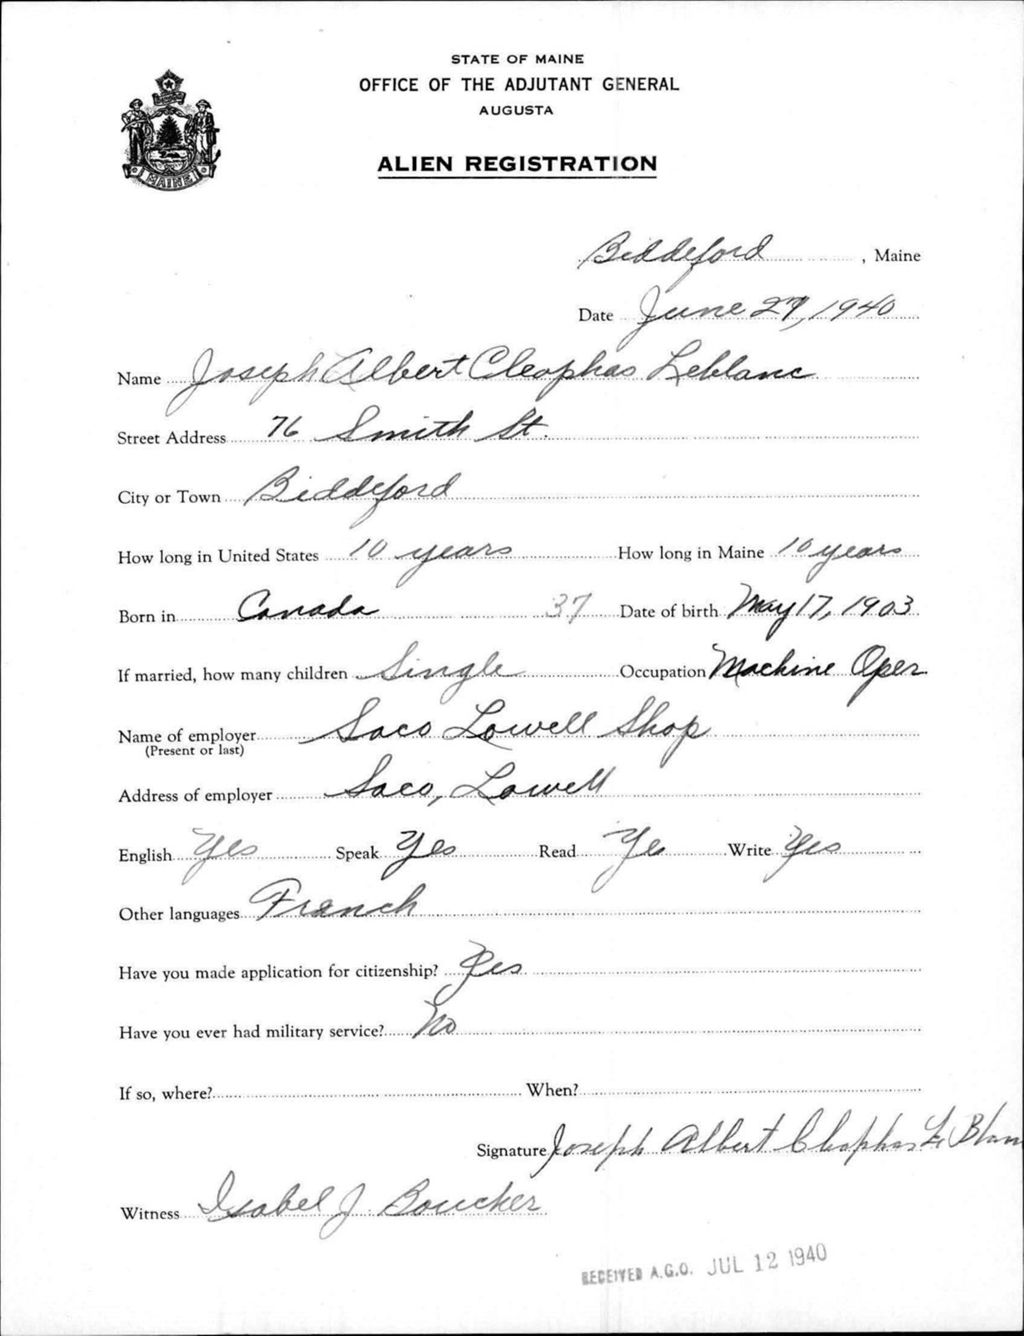 STATE OF MAINE
OFFICE OF THE ADJUTANT GENERAL
AUGUSTA
ALIEN REGISTRATION
MAINE
Biddeford, Maine
Date June 27, 1940
Name Joseph Albert Cleophas Leblanc
Street Address 76 Smith St.
City or Town Biddeford
How long in United States 10 years How long in Maine 10 years
Born in Canada 37 Date of birth May 17, 1903
If married, how many children Single Occupation Machine Oper
Name of employer Saco Lowell Shop
(Present or last)
Address of employer Saco, Lowell
English Yes Speak Yes Read Yes Write Yes
Other languages French
Have you made application for citizenship? Yes
Have you ever had military service? No
If so, where? When?
Signature Joseph Albert Cleophas Le Blan
Witness Isabel J. Boucher
RECEIVED A.G.O. JUL 12 1940